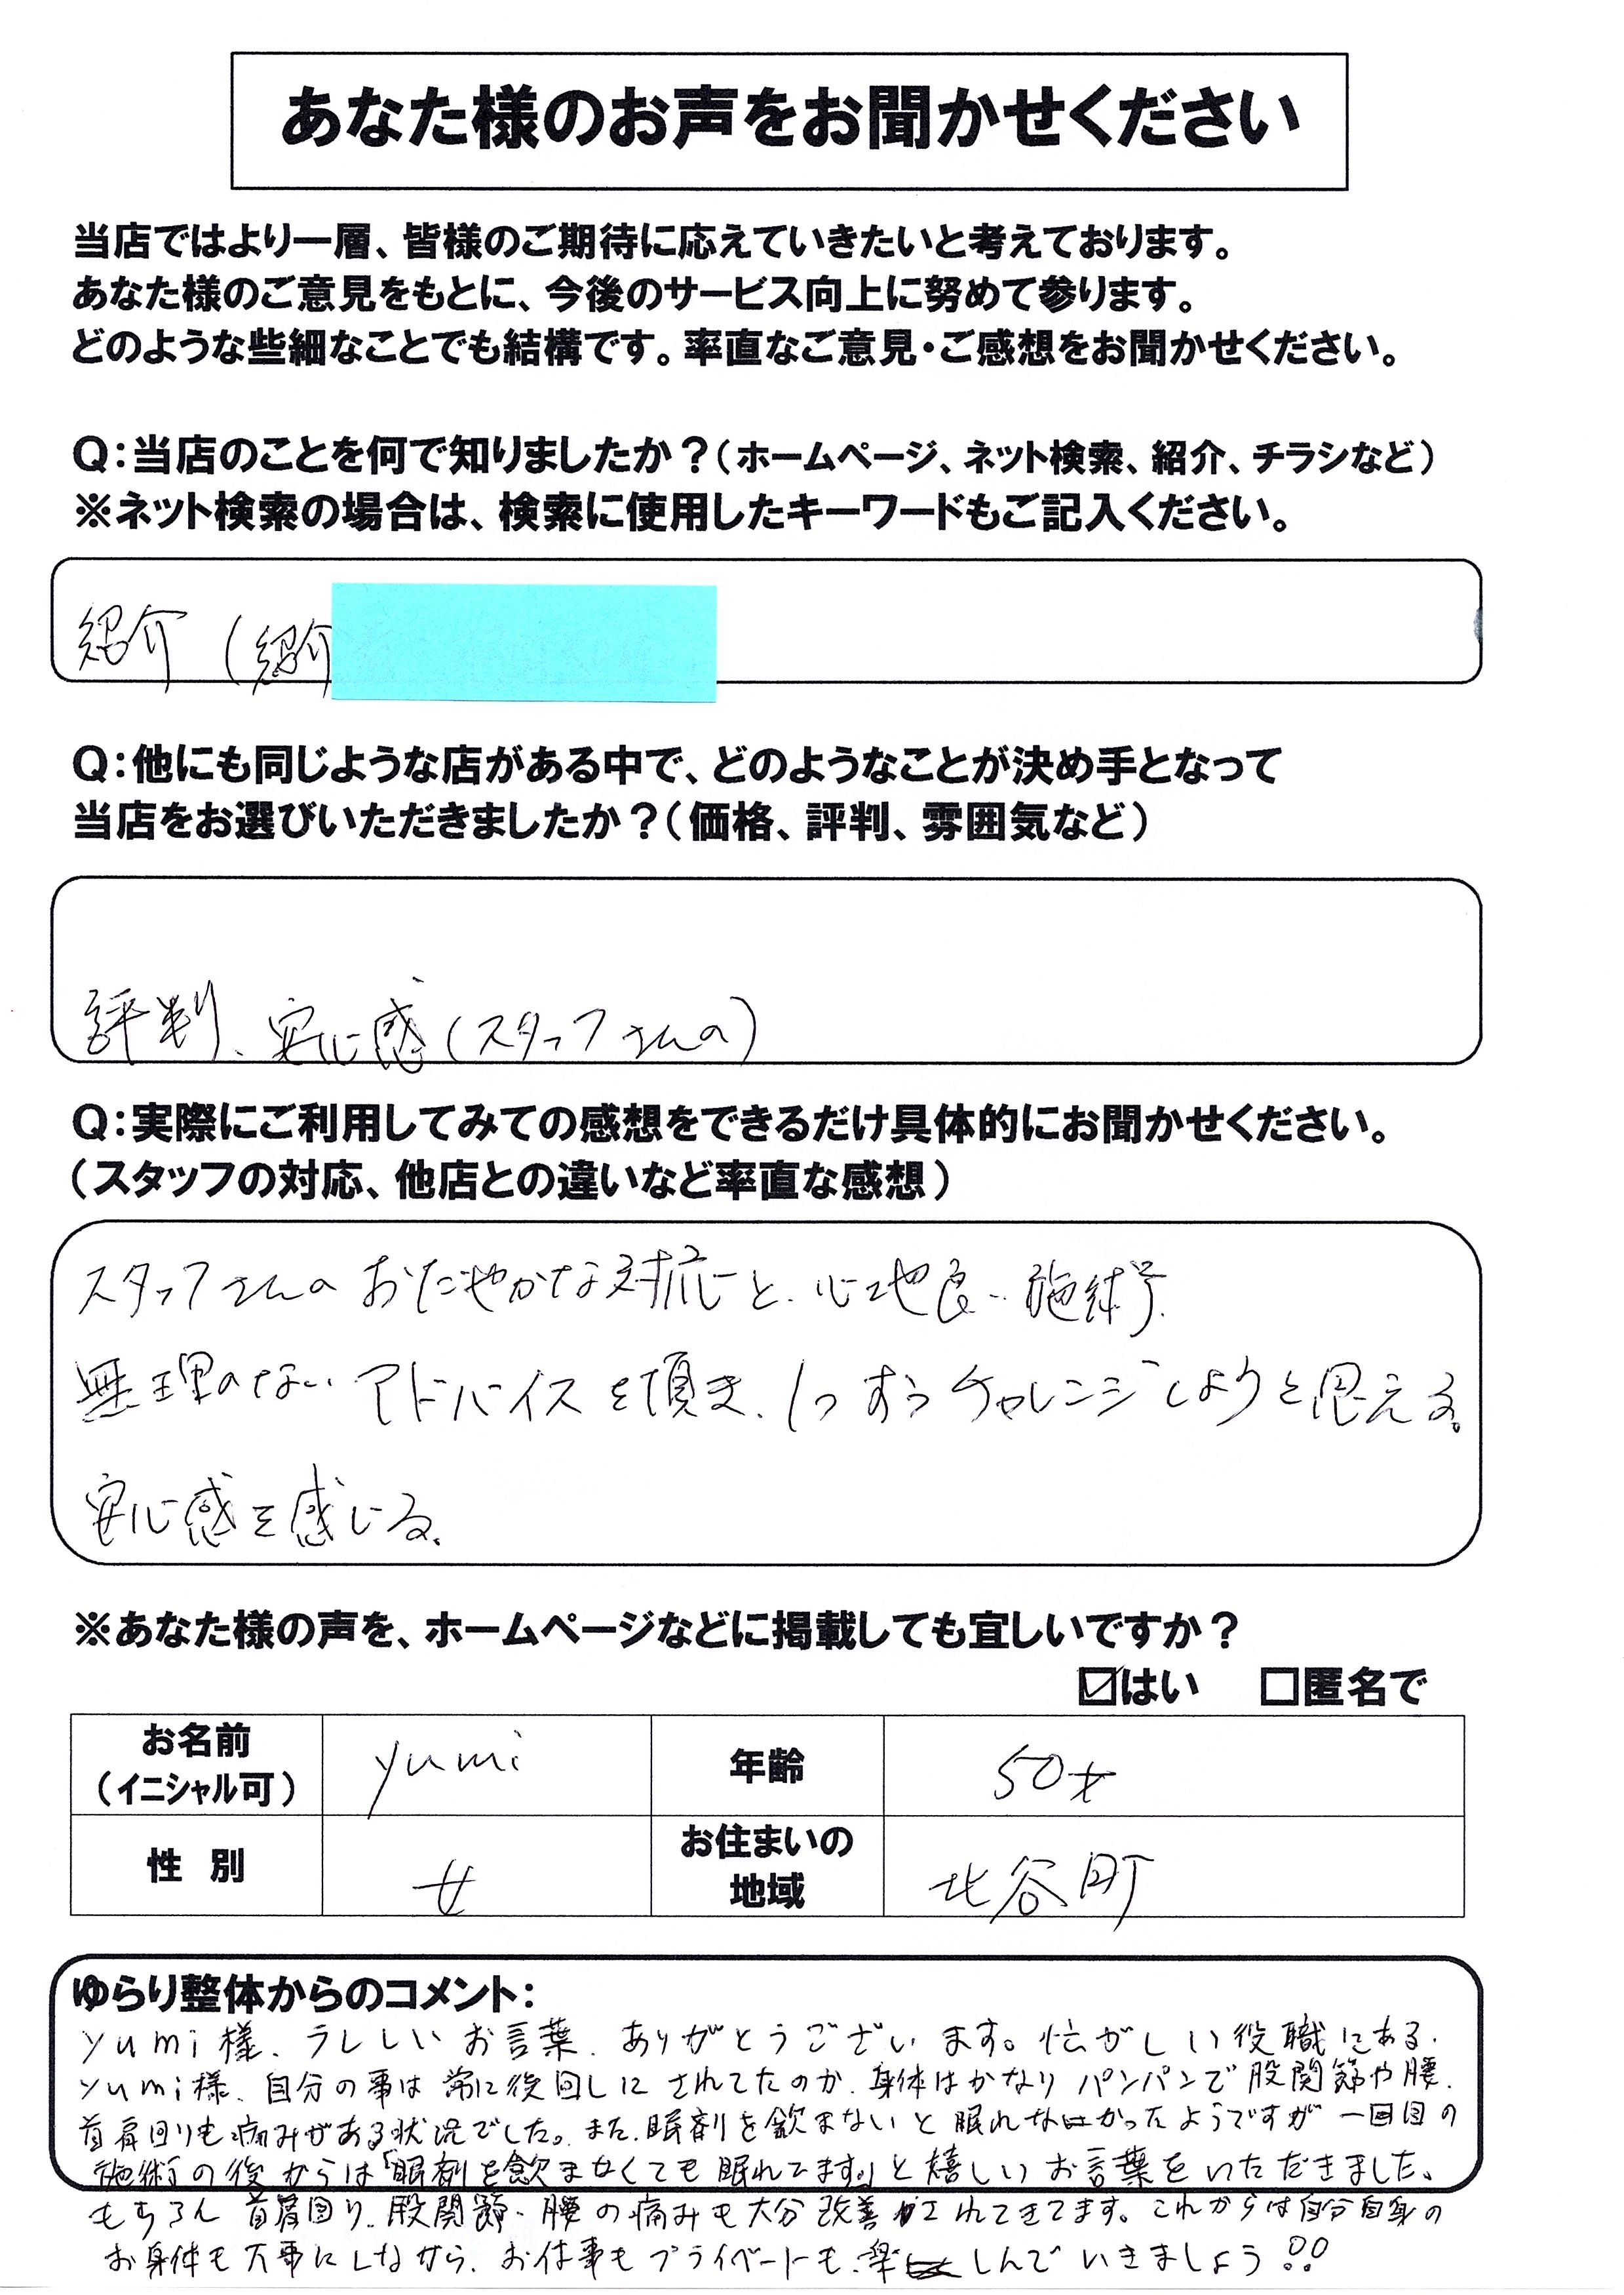 あなた様のお声をお聞かせください
当店ではより一層、皆様のご期待に応えていきたいと考えております。
あなた様のご意見をもとに、今後のサービス向上に努めて参ります。
どのような些細なことでも結構です。率直なご意見・ご感想をお聞かせください。
Q:当店のことを何で知りましたか？(ホームページ、ネット検索、紹介、チラシなど)
※ネット検索の場合は、検索に使用したキーワードもご記入ください。
紹介 (紹介
Q:他にも同じような店がある中で、どのようなことが決め手となって
当店をお選びいただきましたか？(価格、評判、雰囲気など)
評判、安心感(スタッフさんの)
Q:実際にご利用してみての感想をできるだけ具体的にお聞かせください。
(スタッフの対応、他店との違いなど率直な感想)
スタッフさんの おだやかな対応と、心地良い施術。
無理のない アドバイスを頂き、1つずつチャレンジしようと思える。
安心感を感じる。
※あなた様の声を、ホームページなどに掲載しても宜しいですか？
☑はい □匿名で
お名前
(イニシャル可) yumi 年齢 50才
性 別 女 お住まいの
地域 北谷町
ゆらり整体からのコメント:
yumi様、うれしいお言葉、ありがとうございます。忙がしい役職にある、
yumi様、自分の事は常に後回しにされてたのか、身体はかなりパンパンで股関節や腰、
首肩回りも痛みがある状況でした。また、眠剤を飲まないと眠れなかったようですが 一回目の
施術の後からは「眠剤を飲まなくても眠れてます。」と嬉しいお言葉をいただきました。
もちろん 首肩回り、股関節・腰の痛みも大分改善されてきてます。これからは自分自身の
お身体も大事にしながら、お仕事もプライベートも、楽しんでいきましょう!!